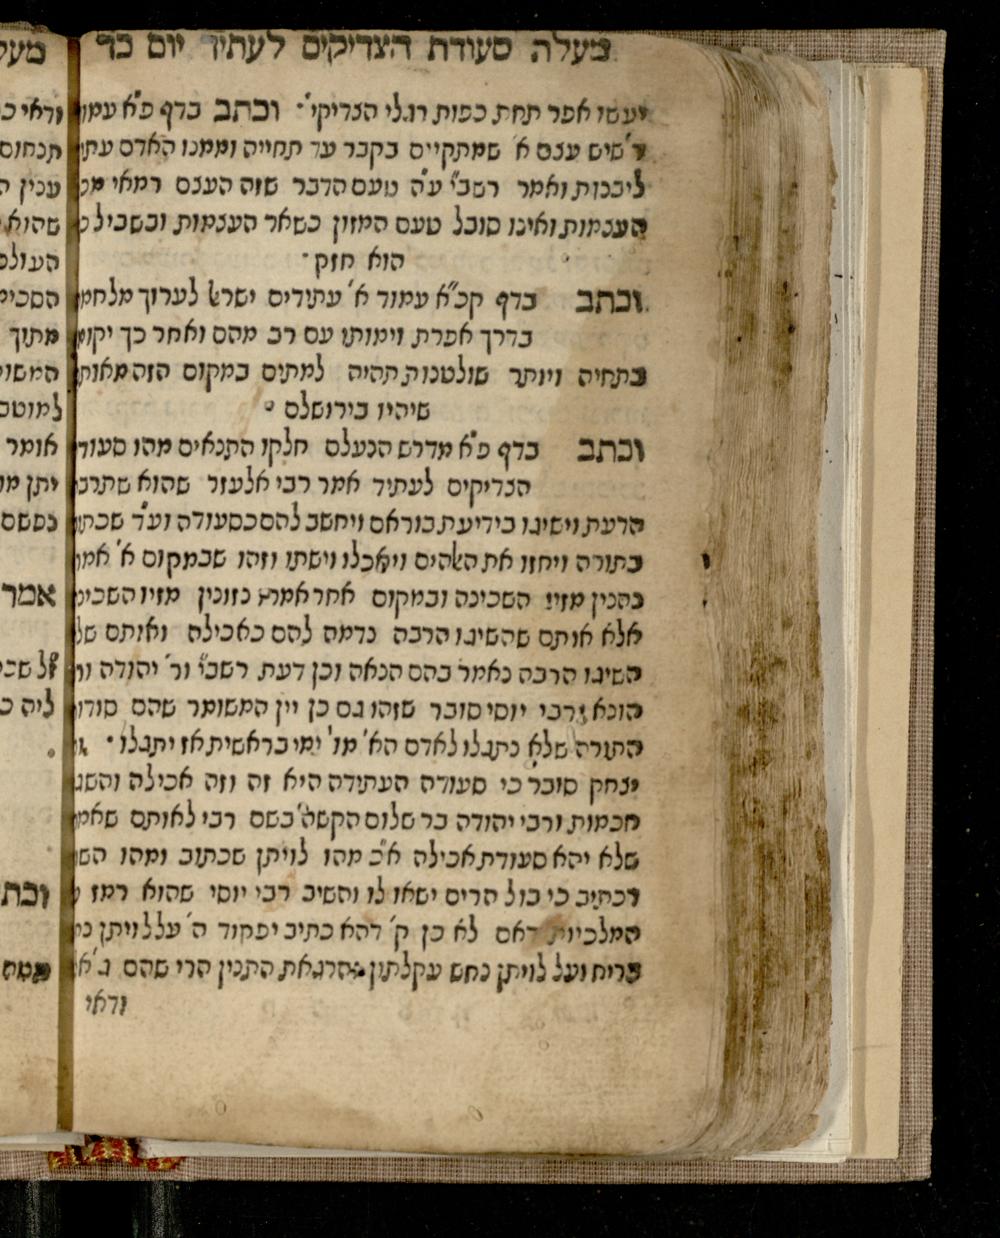 מעלה סעודת הצדיקים לעתיד יום כד
יעשו אפר תחת כפות רגלי הצדיקי' וכתב בדף פ"א עמוד
שיש עצם א' שמתקיים בקבר עד תחייה וממנו האדם
ליבנות ואמר רשב"י ע"ה טעם הדבר שזה העצם רמאי
העצמות ואינו סובל טעם המזון כשאר העצמות ובשביל
הוא חזק
וכתב בדף קכ"א עמוד א' עתידים ישראל לערוך מלחמ
בדרך אפרת וימותו עם רב מהם ואחר כך יקומ
בתחיה ויותר שולטנות תהיה למתים במקום הזה מאות
שיהיו בירושלם
וכתב בדף פ"א מדרש הנעלם חלקו התנאים מהו סעוד
הצדיקים לעתיד אמר רבי אלעזר שהוא
הדעת וישיגו בידיעת בוראם ויחשב להם כסעודה שכתו
בתורה ויחזו את האלהים ויאכלו וישתו וזהו שבמקום א' אמר
נהנין מזיו השכינה ובמקום אחר אמר נזונין מזיו השכינ
אלא אותם שהשיגו הרבה נדמה להם כאכילה ואותם של
השיגו הרבה נאמר בהם הנאה וכן דעת רשב"י ור' יהודה
הונא ורבי יוסי סובר שזהו גם כן יין המשומר שהם סודו
התורה שלא נתגלו לאדם הא' מו' ימי בראשית אז יתגלו
יצחק סובר כי סעודה העתידה היא זה וזה אכילה והשג
חכמות ורבי יהודה בר שלום הקשה בשם רבי לאותם שאמ
שלא יהא סעודת אכילה א"כ מהו לויתן שכתוב ומהו
דכתיב כי בול הרים ישאו לו והשיב רבי יוסי שהוא רמז
המלכיות דאם לא כן ק' דהא כתיב יפקוד ה' על לויתן נח
בריח ועל לויתן נחש עקלתון והרג את התנין הרי שהם
ודאי
מעל
ודאי
תנחום
ענין
שהוא
העולם
הסכימ
מתוך
המשומ
למוטב
אומר
יתן
אמר
שכ
ליה
וכת